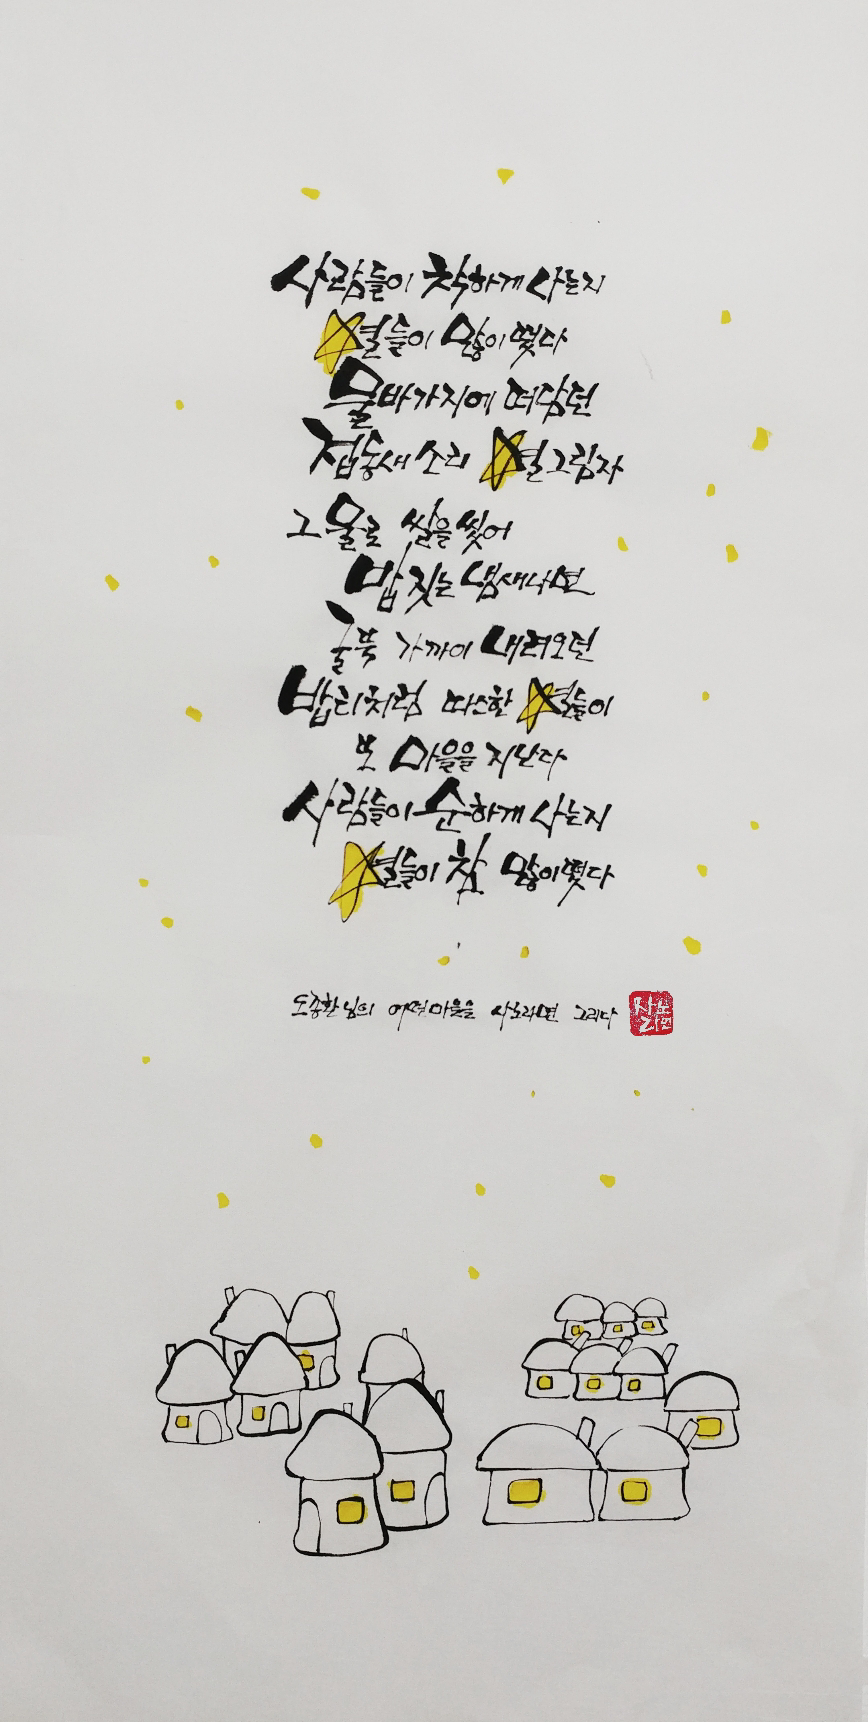 사람들이 착하게 사는지
별들이 많이 떴다
물바가지에 떠담던
접동새 소리 별 그림자
그 물로 쌀을 씻어
밥 짓는 냄새나면
굴뚝 가까이 내려오던
밥티처럼 따스한 별들이
또 마을을 지난다
사람들이 순하게 사는지
별들이 참 많이 떴다
도종환님의 어떤마을을 사노라면 그리다
사노라면